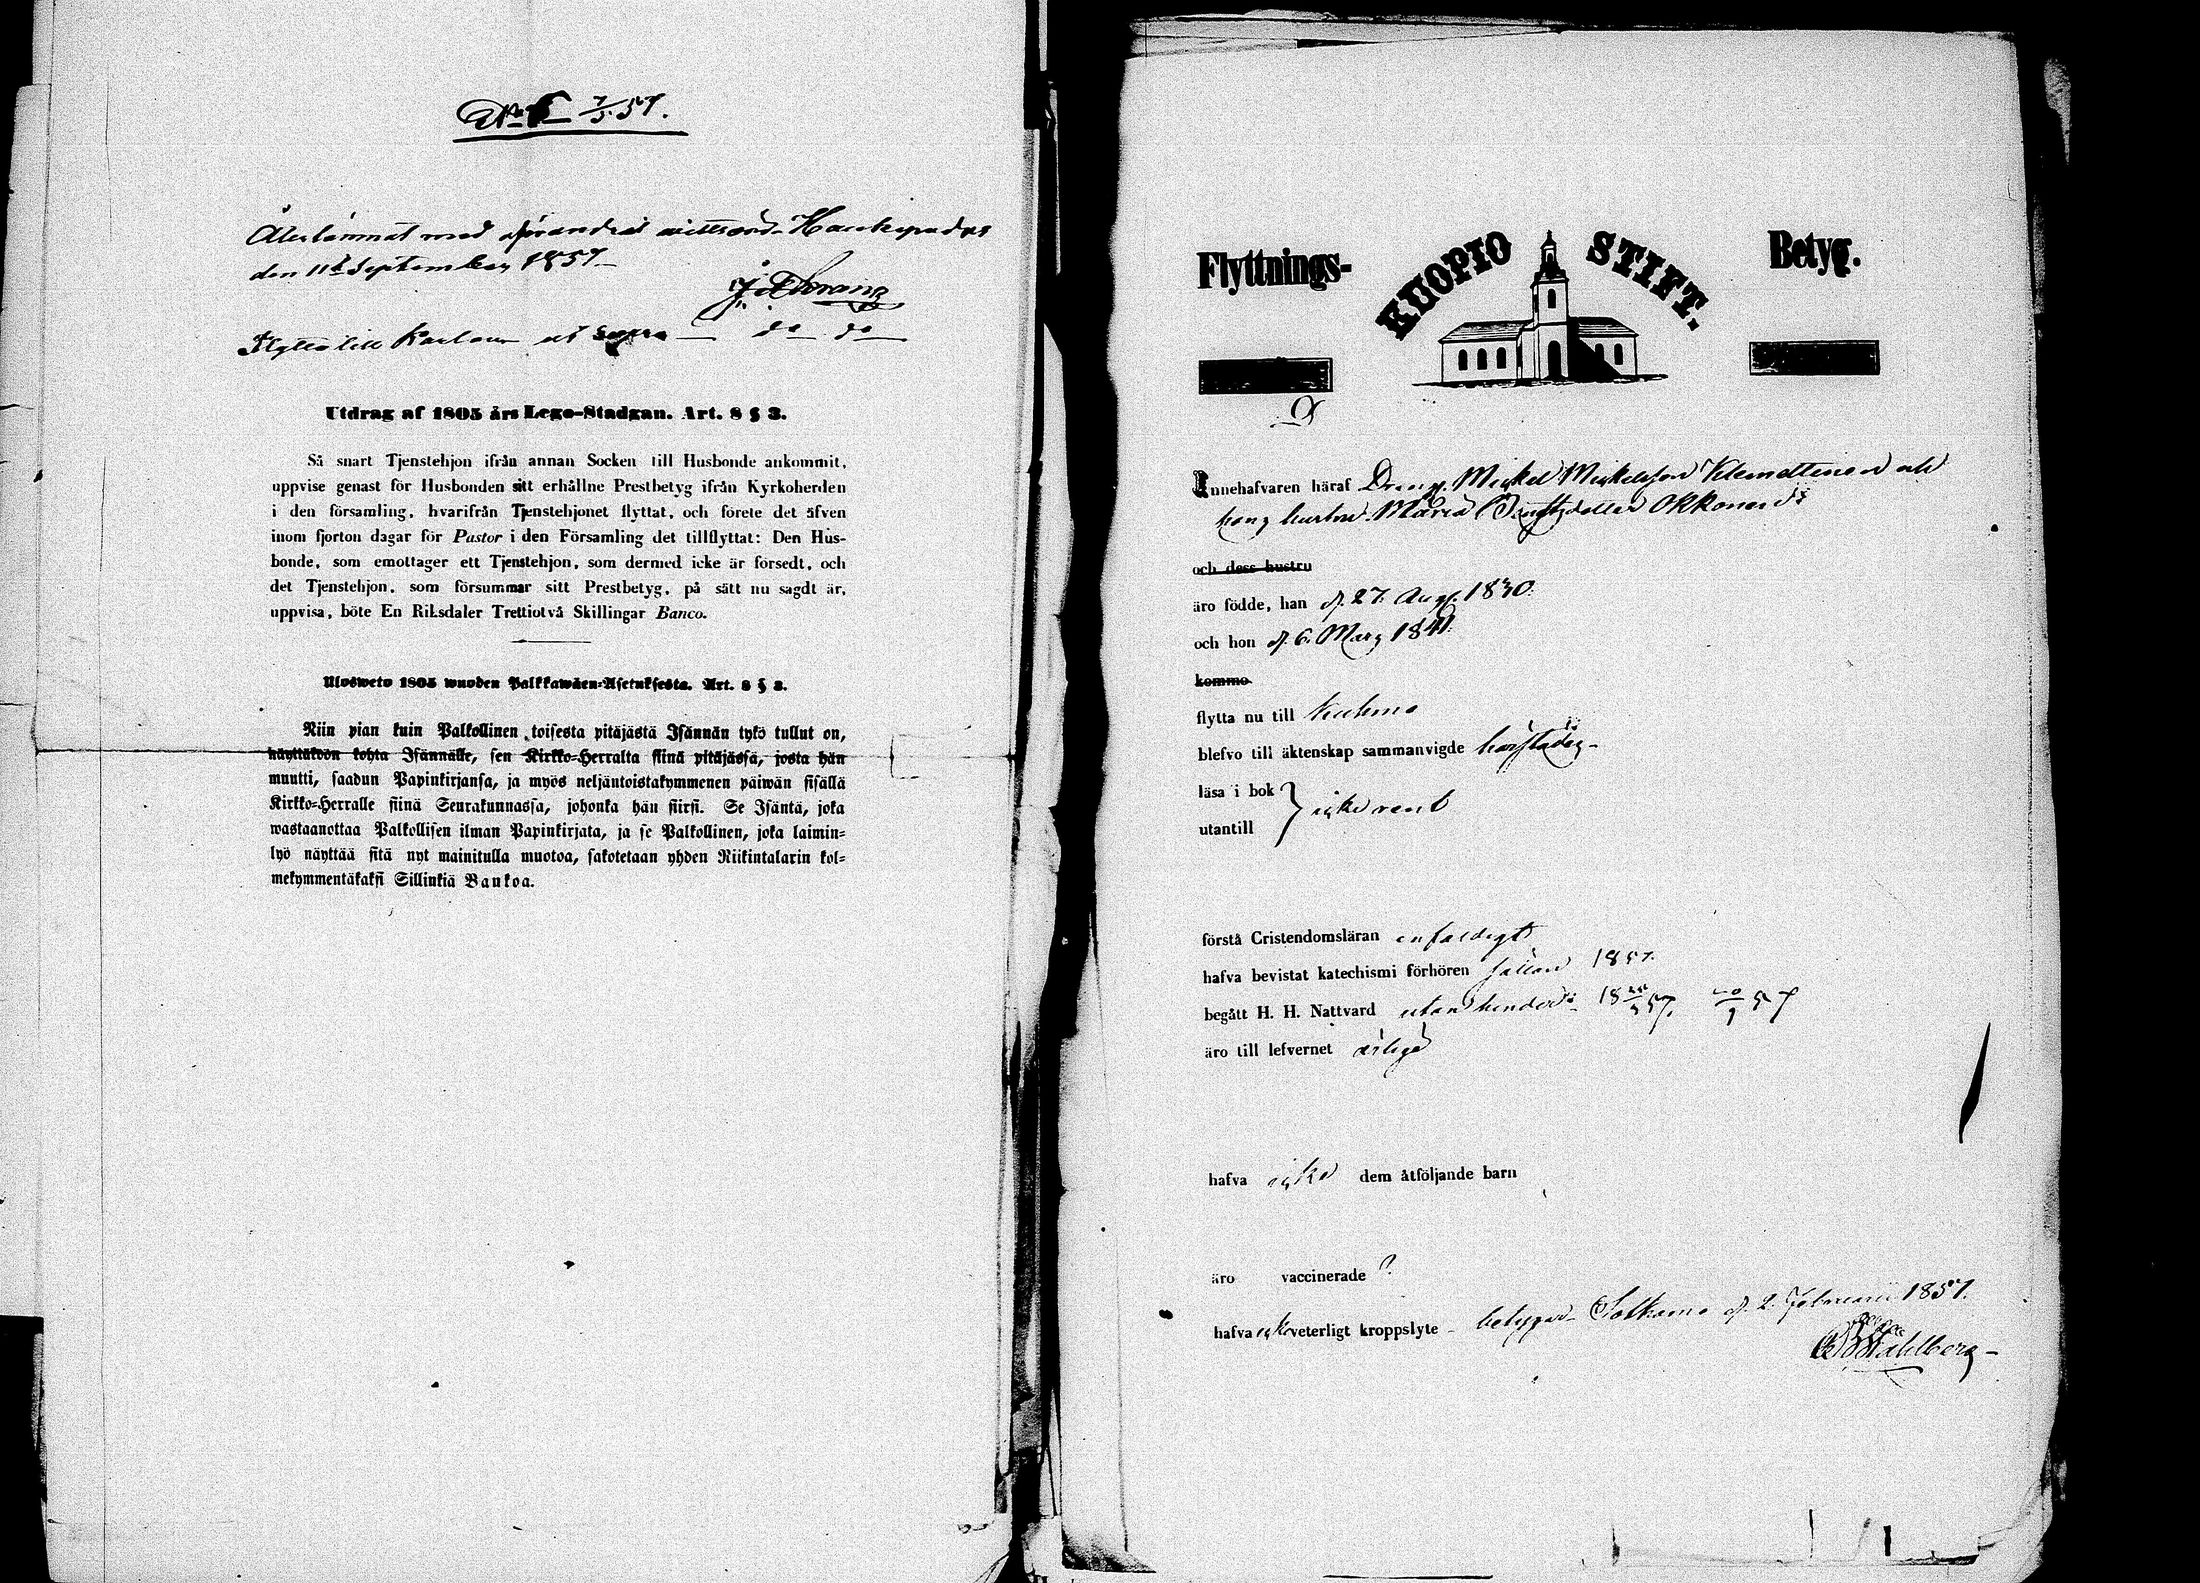 No 6 7/3.57.
Återlämnat med oförändrat vittsord. Haukipudas
den 11 September 1857
Flytta till Karlön ut supra — do — do —
Utdrag af 1805 års Lego-Stadgan. Art. 8 § 3.
Så snart Tjenstehjon ifrån annan Socken till Husbonde ankommit,
uppvise genast för Husbonden sitt erhållne Prestbetyg ifrån Kyrkoherden
i den församling, hvarifrån Tjenstehjonet flyttat, och förete det äfven
inom fjorton dagar för Pastor i den Församling det tillflyttat: Den Hus-
bonde, som emottager ett Tjenstehjon, som dermed icke är försedt, och
det Tjenstehjon, som försummar sitt Prestbetyg, på sätt nu sagdt är,
uppvisa, böte En Riksdaler Trettiotvå Skillingar Banco.
Ulosweto 1805 wuoden Palkkawäen-Asetuksesta. Art. 8 § 3.
Niin pian kuin Palkollinen toisesta pitäjästä Isännän tykö tullut on,
näyttäköön kohta Isännälle, sen Kirkko-Herralta siinä pitäjässä, josta hän
muutti, saadun Papinkirjansa, ja myös neljäntoistakymmenen päiwän sisällä
Kirkko-Herralle siinä Seurakunnassa, johonka hän siirsi. Se Isäntä, joka
wastaanottaa Palkollisen ilman Papinkirjata, ja se Palkollinen, joka laimin-
lyö näyttää sitä nyt mainitulla muotoa, sakotetaan yhden Riikintalarin kol-
mekymmentäkaksi Sillinkiä Bankoa.
Flyttnings- KUOPIO STIFT. Betyg.
Innehafvaren häraf Dreng. Mickel Mickelsson Klemettinen och
hans hustru Maria Bengtsdotter Okkonen
och dess hustru
äro födde, han d. 27. Aug. 1830.
och hon d. 6. Mars 1841.
komme
flytta nu till Kuhmo
blefvo till äktenskap sammanvigde härstädes
läsa i bok
utantill } icke rent
förstå Cristendomsläran enfaldigt
hafva bevistat katechismi förhören sällan 1857.
begått H. H. Nattvard utan hinder 18 57. 57
äro till lefvernet ärliga
hafva icke dem åtföljande barn
äro vaccinerade ?
hafva icke veterligt kroppslyte betygar Sotkamo d. 2. Februarii 1857.
Stahlberg